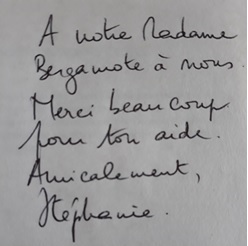 A notre Madame
Bergamote à nous.
Merci beaucoup
pour ton aide.
Amicalement,
Stéphanie.